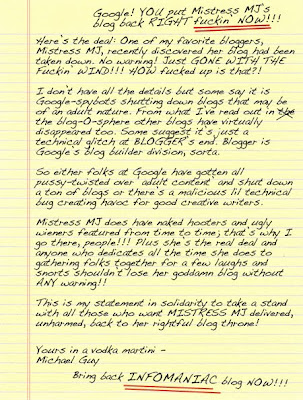 Google! YOU put Mistress MJ's
blog back RIGHT fuckin' NOW!!!
Here's the deal: One of my favorite bloggers,
Mistress MJ, recently discovered her blog had been
taken down. No warning! Just GONE WITH THE
Fuckin' WIND!!! HOW fucked up is that?!
I don't have all the details but some say it is
Google-spybots shutting down blogs that may be
of an adult nature. From what I've read out in the
the blog-O-sphere other blogs have virtually
disappeared too. Some suggest it's just a
technical glitch at BLOGGER's end. Blogger is
Google's blog builder division, sorta.
So either folks at Google have gotten all
pussy-twisted over adult content and shut down
a ton of blogs or there's a malicious lil technical
bug creating havoc for good creative writers.
Mistress MJ does have naked hooters and ugly
wieners featured from time to time; that's why I
go there, people!!! Plus she's the real deal and
anyone who dedicates all the time she does to
gathering folks together for a few laughs and
snorts shouldn't lose her goddamn blog without
ANY warning!!
This is my statement in solidarity to take a stand
with all those who want MISTRESS MJ delivered,
unharmed, back to her rightful blog throne!
Yours in a vodka martini -
Michael Guy
Bring back INFOMANIAC blog NOW!!!